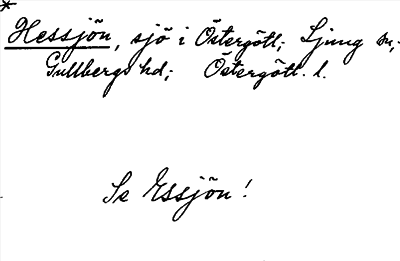 *
Hessjön, sjö i Östergötl; Ljung sn,
Gullbergs hd; Östergötl. l.
Se Essjön!